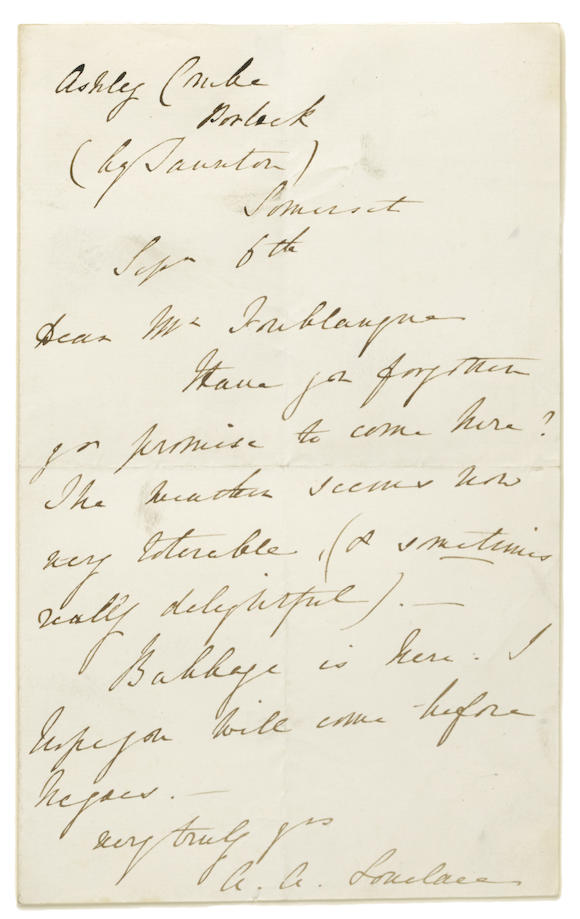 Ashley Combe
Porlock
(by Taunton)
Somerset
Sepr 6th
Dear Mr Fonblanque
Have you forgotten
yr promise to come here?
The weather seems now
very tolerable, (& sometimes
really delightful). —
Babbage is here. I
hope you will come before
he goes. —
very truly yrs
A. A. Lovelace